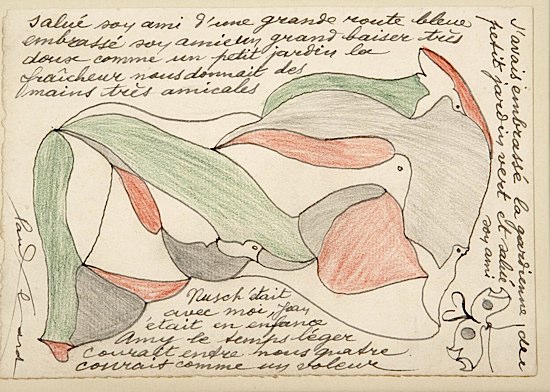 salué soy ami d'une grande route bleue
embrassé soy amie un grand baiser très
doux comme un petit jardin la
fraîcheur nous donnait des
mains très amicales
J'avais embrassé la gardienne du
petit jardin vert et salué
soy ami
Nusch était
avec moi
était en enfance
Amy le temps léger
courait entre nous quatre
courait comme un voleur
Paul Eluard